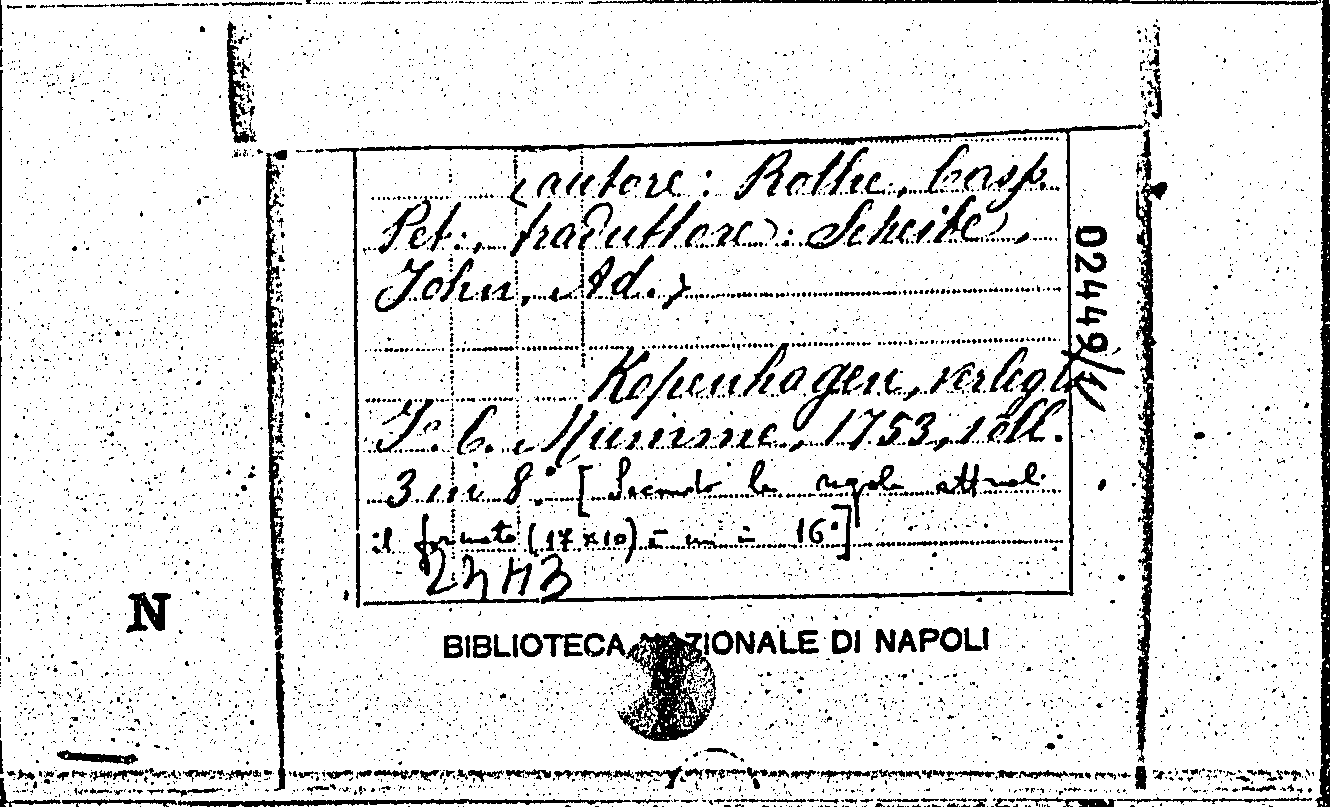 (autore: Rothe, Casp.
Pet., traduttore: Scheibe,
John. Ad.)
Kopenhagen, verlegts
J. C. Mumme, 1753, voll.
3 in 8.° [Secondo le regole attuali
il formato (17x10) è un in 16°]
02449/1
N
BIBLIOTECA NAZIONALE DI NAPOLI